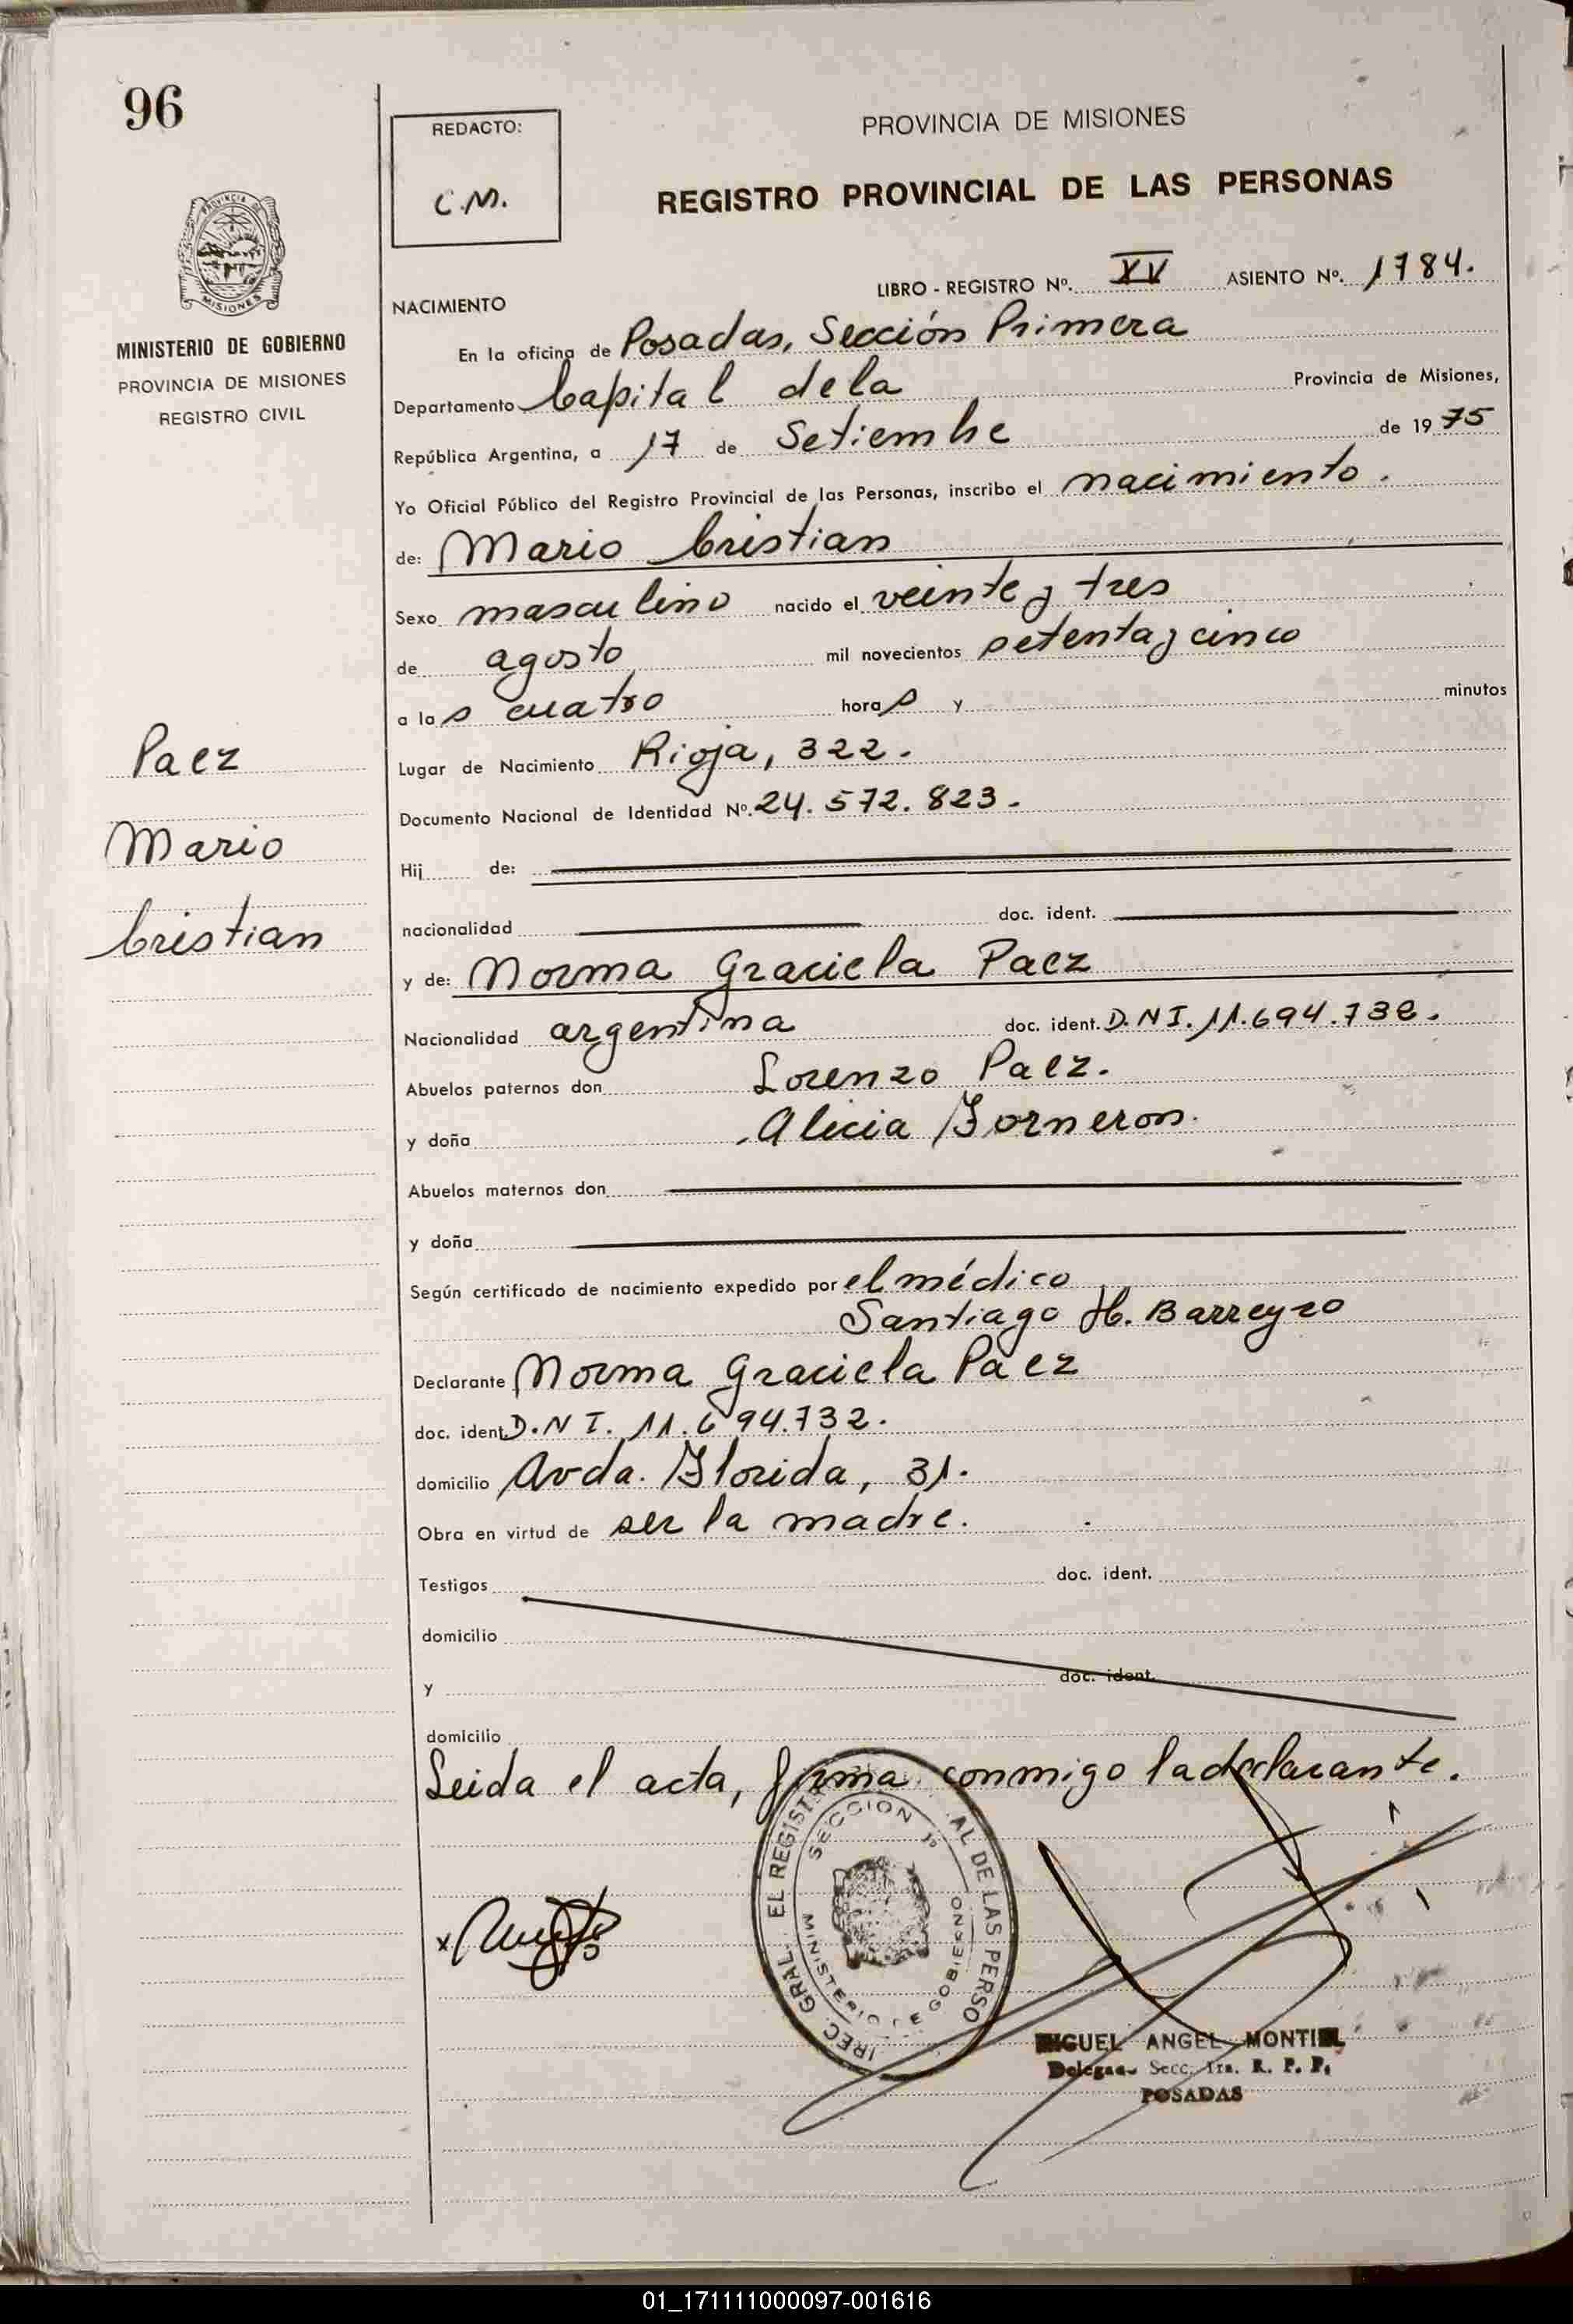 96
REDACTO:
C.M.
PROVINCIA DE MISIONES
REGISTRO PROVINCIAL DE LAS PERSONAS
LIBRO - REGISTRO Nº. XV ASIENTO Nº. 1784.
PROVINCIA DE
MISIONES
MINISTERIO DE GOBIERNO
PROVINCIA DE MISIONES
REGISTRO CIVIL
NACIMIENTO
En la oficina de Posadas, Sección Primera
Departamento Capital de la Provincia de Misiones,
República Argentina, a 17 de Setiembre de 1975
Yo Oficial Público del Registro Provincial de las Personas, inscribo el nacimiento.
de: Mario Cristian
Sexo masculino nacido el veinte y tres
de agosto mil novecientos setenta y cinco
a las cuatro horas y minutos
Lugar de Nacimiento Rioja, 322.
Documento Nacional de Identidad Nº. 24.572.823.
Paez
Mario
Cristian
Hij de:
nacionalidad doc. ident.
y de: Norma Graciela Paez
Nacionalidad argentina doc. ident. D.N.I. 11.694.732.
Abuelos paternos don Lorenzo Paez.
y doña Alicia Forneron.
Abuelos maternos don
y doña
Según certificado de nacimiento expedido por el médico
Santiago H. Barreyro
Declarante Norma Graciela Paez
doc. ident. D.N.I. 11.694.732.
domicilio Avda. Florida, 31.
Obra en virtud de ser la madre.
Testigos doc. ident.
domicilio
y doc. ident.
domicilio
Leida el acta, firma conmigo la declarante.
IREC. GRAL. EL REGIST AL DE LAS PERSO
SECCION 1º
MINISTERIO DE GOBIERNO
MIGUEL ANGEL MONTIEL
Delegado Secc. 1ra. R. P. P.
POSADAS
01_171111000097-001616